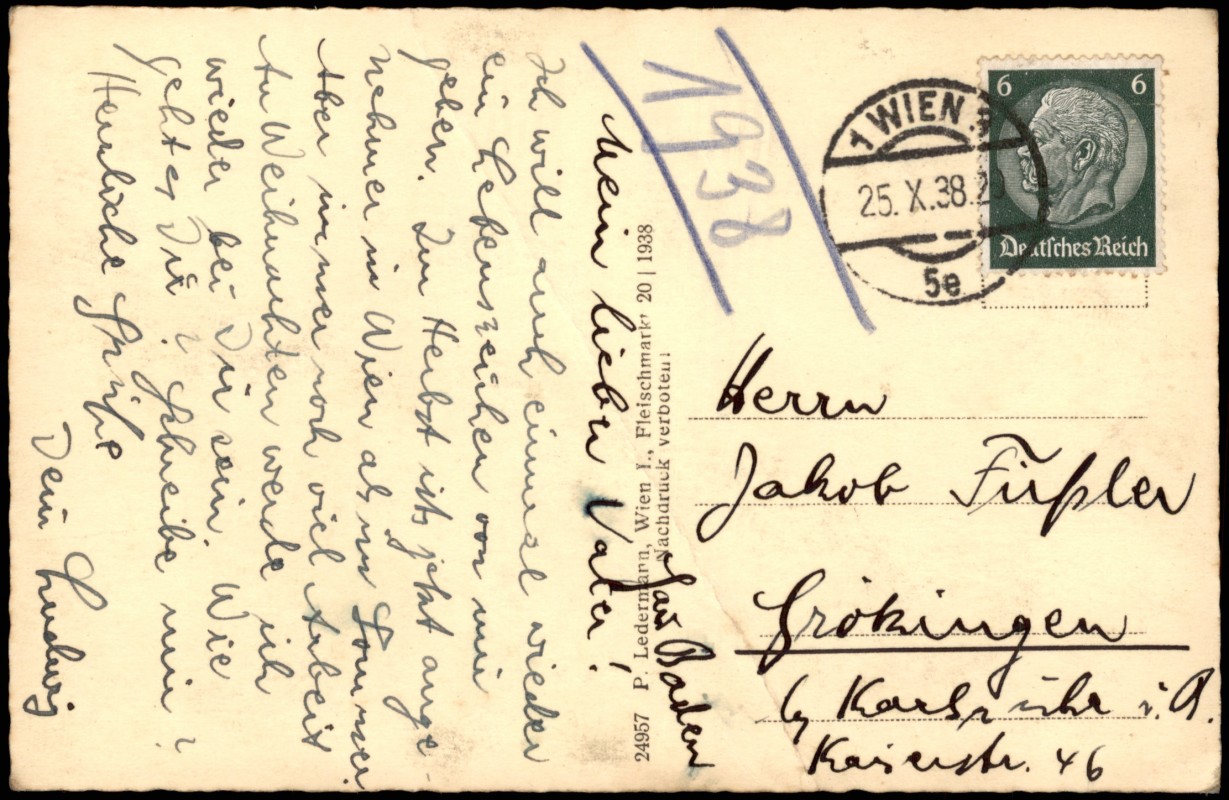 Mein lieber Vater!
Ich will auch einmal wieder
ein Lebenszeichen von mir
geben. Im Herbst ists jetzt ange-
nehmer in Wien als im Sommer.
Aber immer noch viel Arbeit
An Weihnachten werde ich
wieder bei Dir sein. Wie
geht es Dir? Schreibe mir?
Herzliche Grüße
Dein Ludwig
1938
24957 P. Ledermann, Wien I., Fleischmarkt 20 | 1938
Nachdruck verboten!
1 WIEN
25. X. 38. 2
5e
6 6
Deutsches Reich
Herrn
Jakob Füßler
Grökingen
by Karlsruhe i. B.
Kaiserstr. 46
Gau Baden